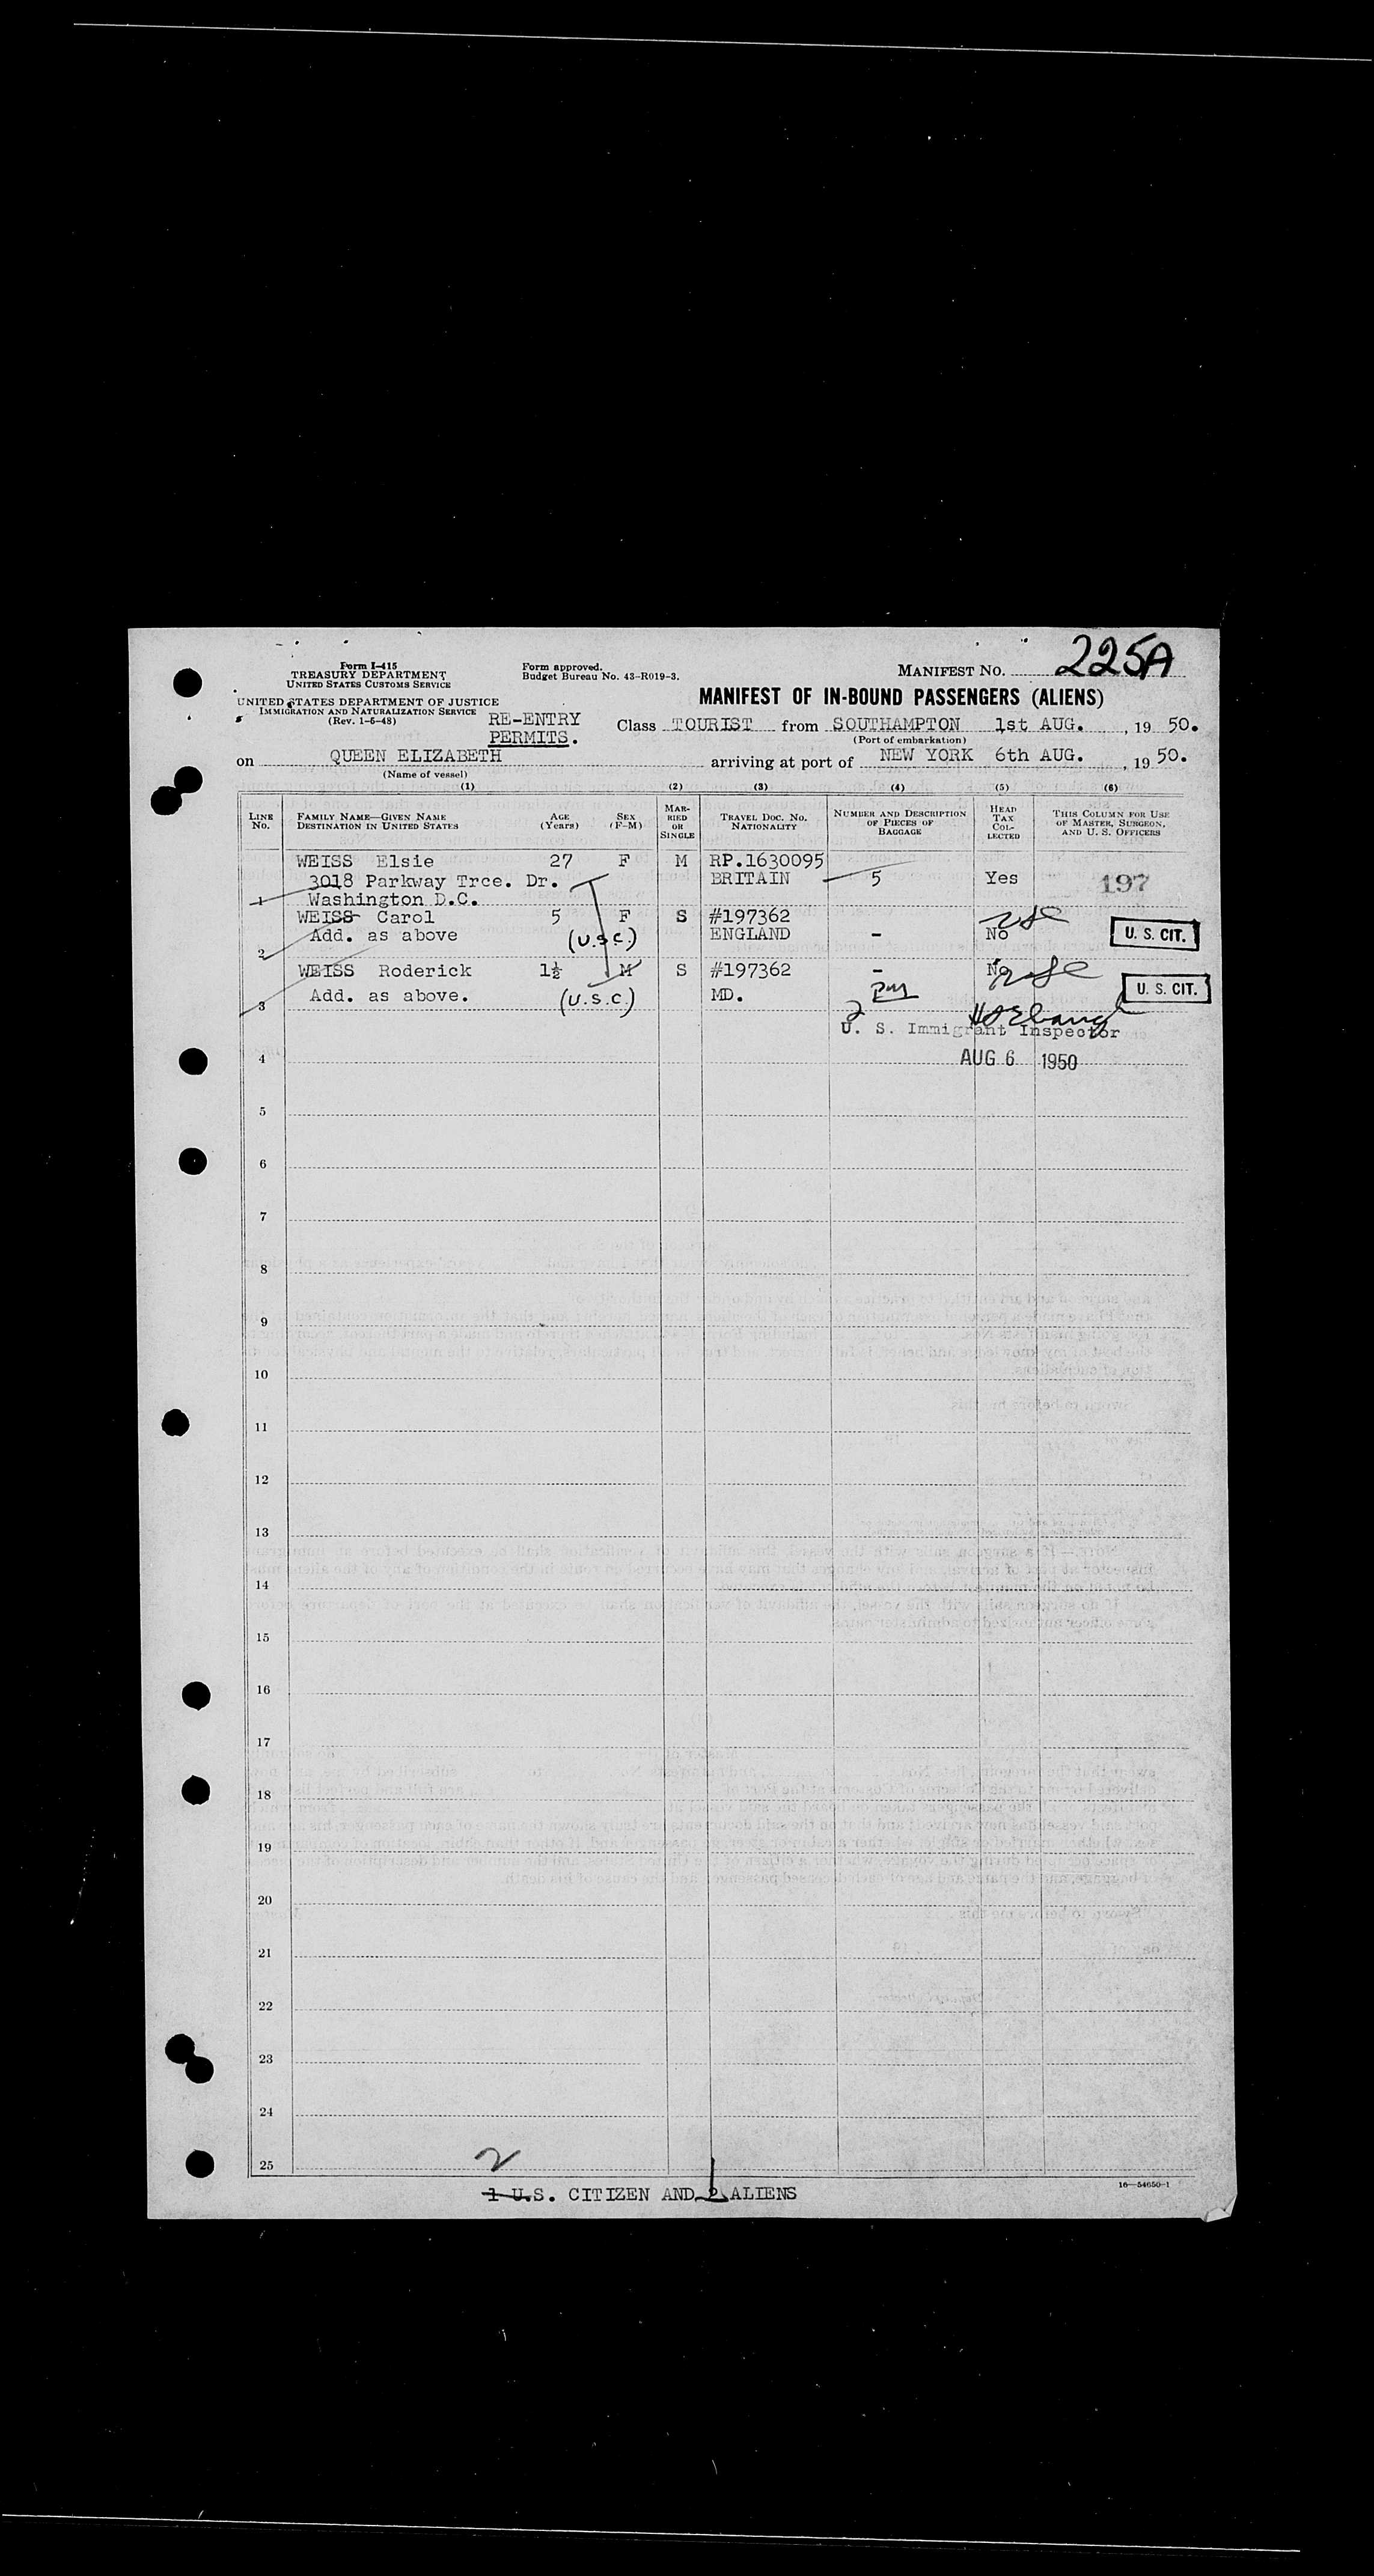 Form I-415
TREASURY DEPARTMENT
UNITED STATES CUSTOMS SERVICE
UNITED STATES DEPARTMENT OF JUSTICE
IMMIGRATION AND NATURALIZATION SERVICE
(Rev. 1-6-48)
Form approved.
Budget Bureau No. 43-R019-3.
MANIFEST NO. 225A
MANIFEST OF IN-BOUND PASSENGERS (ALIENS)
RE-ENTRY
PERMITS.
Class TOURIST from SOUTHAMPTON 1st AUG., 19 50.
(Port of embarkation)
on QUEEN ELIZABETH arriving at port of NEW YORK 6th AUG., 19 50.
(Name of vessel)
(1) (2) (3) (4) (5) (6)
LINE NO.
FAMILY NAME—GIVEN NAME
DESTINATION IN UNITED STATES
AGE (Years)
SEX (F-M)
MARRIED OR SINGLE
TRAVEL DOC. NO.
NATIONALITY
NUMBER AND DESCRIPTION OF PIECES OF BAGGAGE
HEAD TAX COLLECTED
THIS COLUMN FOR USE OF MASTER, SURGEON, AND U. S. OFFICERS
WEISS Elsie 27 F M RP.1630095
3018 Parkway Trce. Dr. BRITAIN 5 Yes 197
1 Washington D.C.
WEISS Carol 5 F S #197362
Add. as above (U.S.C.) ENGLAND - No U. S. CIT.
2
WEISS Roderick 1½ M S #197362 - No
3 Add. as above. (U.S.C.) MD. U. S. CIT.
2
U. S. Immigrant Inspector
4 AUG 6 1950
5
6
7
8
9
10
11
12
13
14
15
16
17
18
19
20
21
22
23
24
25
2
1 U.S. CITIZEN AND 2 ALIENS
16—54650-1